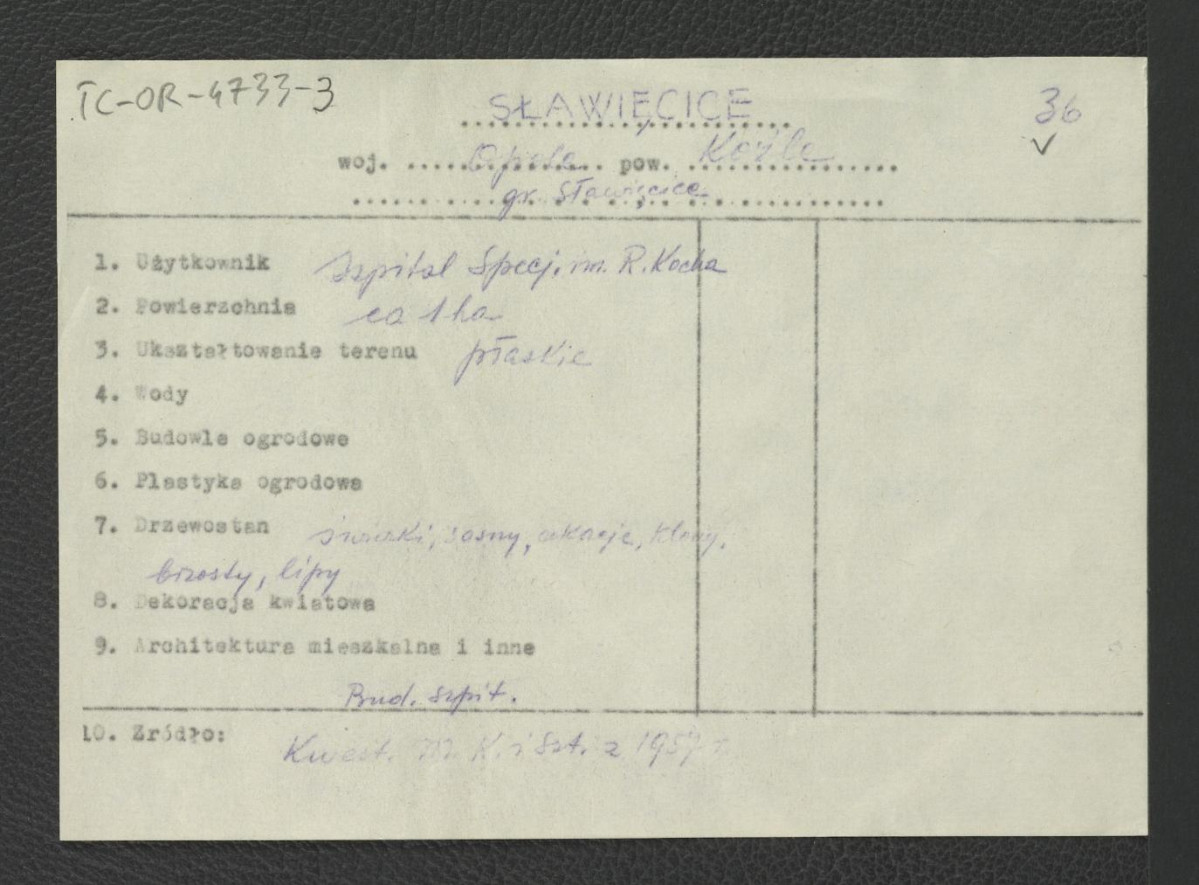 TC-OR-4733-3
SŁAWIĘCICE 36
woj. Opole pow. Koźle
gr. Sławięcice
1. Użytkownik Szpital Specj. im. R. Kocha
2. Powierzchnia ca 1 ha
3. Ukształtowanie terenu płaskie
4. Wody
5. Budowle ogrodowe
6. Plastyka ogrodowa
7. Drzewostan świerki, sosny, akacje, klony,
brzosty, lipy
8. Dekoracja kwiatowa
9. Architektura mieszkalna i inne
Bud. szpit.
10. Zródło: Kwest. M. K. i Szt. z 1957 r.